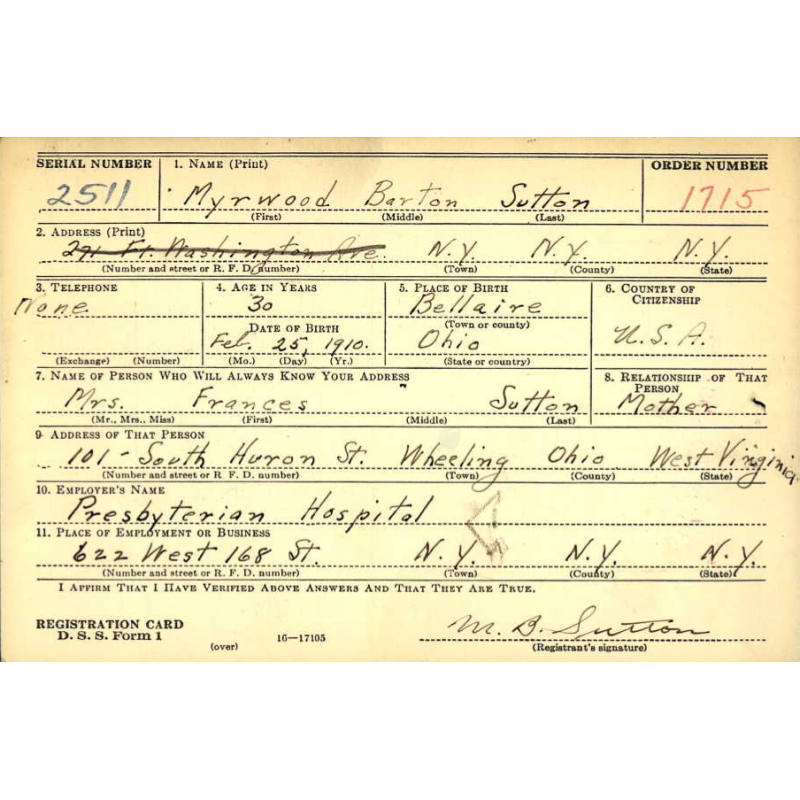 SERIAL NUMBER 1. NAME (Print) ORDER NUMBER
2511 Myrwood Barton Sutton 1715
(First) (Middle) (Last)
2. ADDRESS (Print)
Ft. Washington Ave. N.Y. N.Y. N.Y.
(Number and street or R. F. D. number) (Town) (County) (State)
3. TELEPHONE 4. AGE IN YEARS 5. PLACE OF BIRTH 6. COUNTRY OF CITIZENSHIP
None 30 Bellaire
DATE OF BIRTH (Town or county)
Feb. 25, 1910. Ohio U.S.A.
(Exchange) (Number) (Mo.) (Day) (Yr.) (State or country)
7. NAME OF PERSON WHO WILL ALWAYS KNOW YOUR ADDRESS 8. RELATIONSHIP OF THAT PERSON
Mrs. Frances Sutton Mother
(Mr., Mrs., Miss) (First) (Middle) (Last)
9. ADDRESS OF THAT PERSON
101 - South Huron St. Wheeling Ohio West Virginia
(Number and street or R. F. D. number) (Town) (County) (State)
10. EMPLOYER'S NAME
Presbyterian Hospital
11. PLACE OF EMPLOYMENT OR BUSINESS
622 West 168 St. N.Y. N.Y. N.Y.
(Number and street or R. F. D. number) (Town) (County) (State)
I AFFIRM THAT I HAVE VERIFIED ABOVE ANSWERS AND THAT THEY ARE TRUE.
REGISTRATION CARD
D. S. S. Form 1 M. B. Sutton
(over) 16—17105 (Registrant's signature)